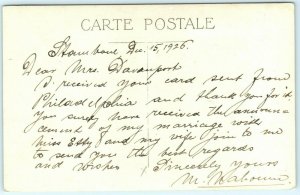 CARTE POSTALE
Stamboul Dec. 15, 1926.
Dear Mrs. Davenport
I received your card sent from
Philadelphia and thank you for it
You surely have received the announce
cement of my marriage with
Miss Etty and my wife join to me
to send you the best regards
and wishes Sincerely yours
M.